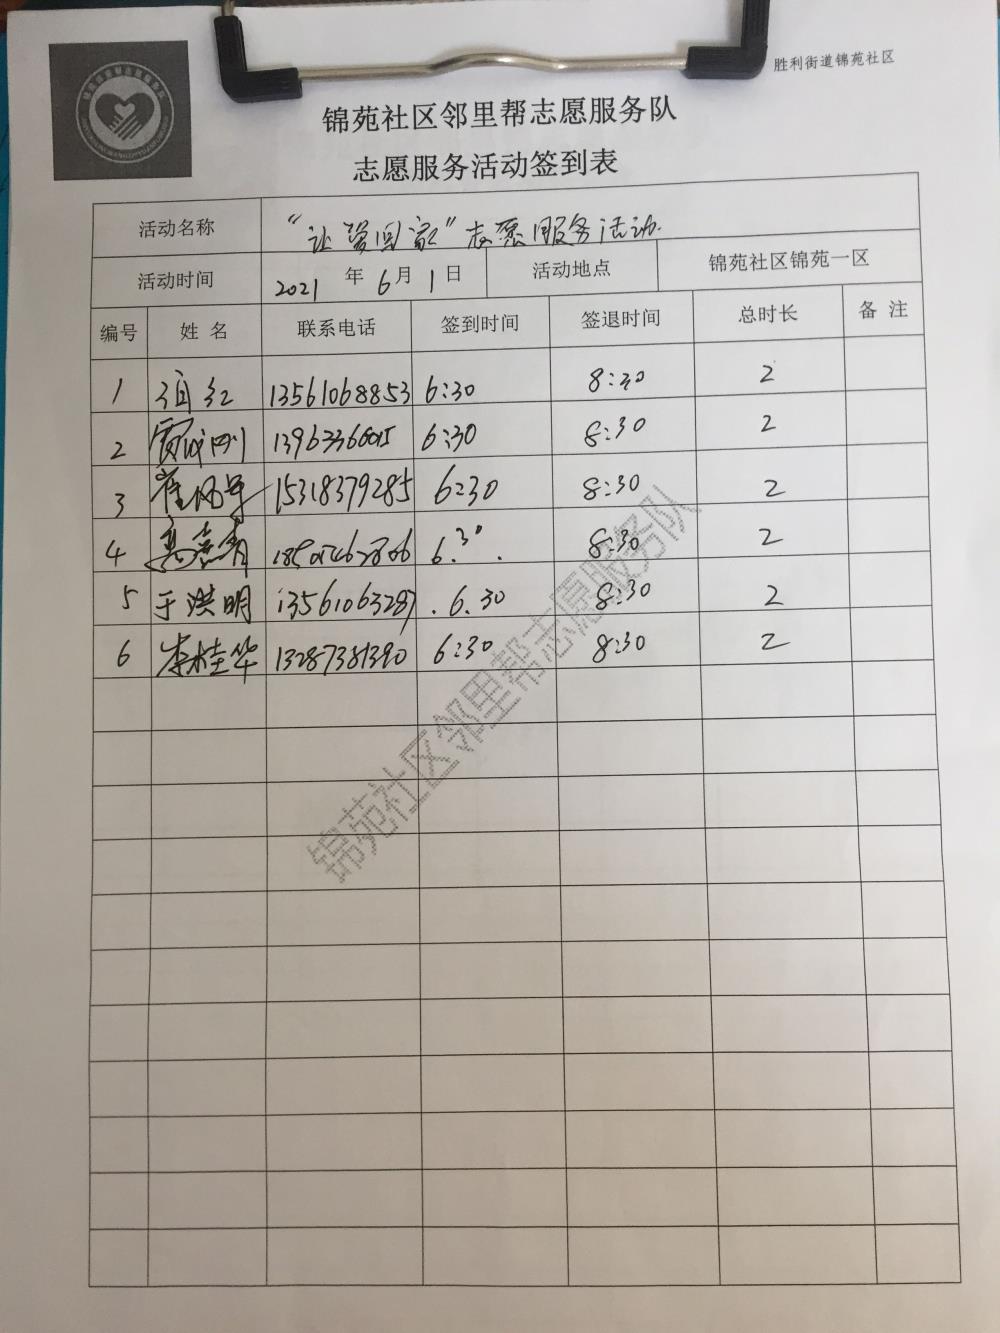 胜利街道锦苑社区
锦苑社区邻里帮志愿服务队
志愿服务活动签到表
活动名称 "让爱回家"志愿服务活动.
活动时间 2021 年 6 月 1 日 活动地点 锦苑社区锦苑一区
编号 姓 名 联系电话 签到时间 签退时间 总时长 备 注
1 红 13561068853 6:30 8:30 2
2 6:30 8:30 2
3 崔 15318379285 6:30 8:30 2
4 高 6.30. 8:30 2
5 于洪明 13561063287 .6.30 8:30 2
6 李桂华 13287381390 6:30 8:30 2
锦苑社区邻里帮志愿服务队